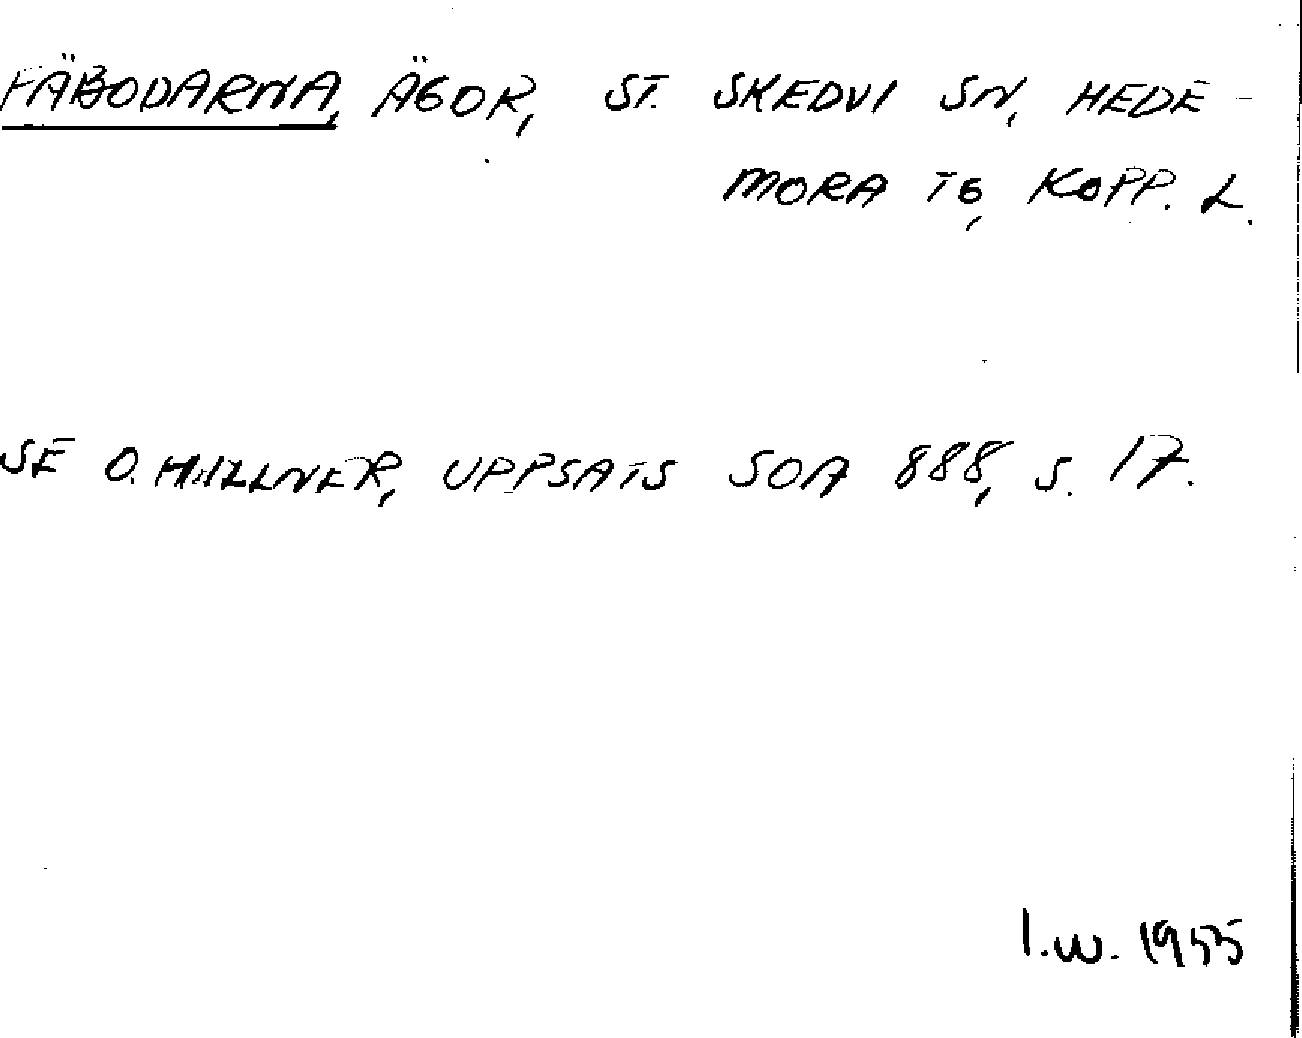 FÄBODARNA, ÄGOR, ST. SKEDVI SN, HEDE-
MORA TG, KOPP. L.
SE O. MILLNER, UPPSATS SOA 888, S. 17.
I.W. 1955